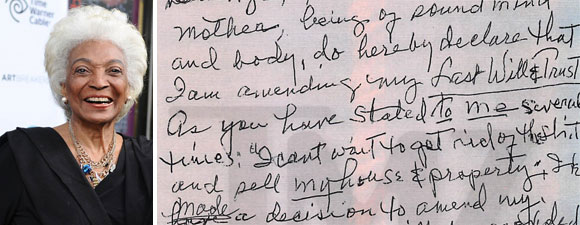 Time
Warner
Cable
ART
mother, being of sound mind
and body, do hereby declare that
I am amending my Last Will & Trust
As you have stated to me several
times: "I cant wait to get rid of this shit
and sell my house & property", I h
made a decision to amend my